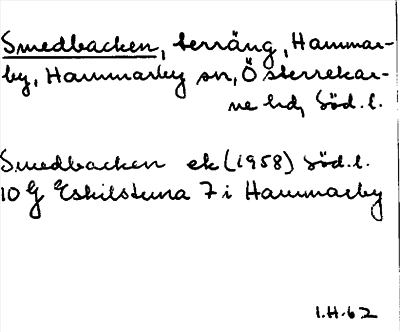 Smedbacken, terräng, Hammar-
by, Hammarby sn, Österrekar-
ne hd, Söd.l.
Smedbacken ek (1958) Söd.l.
10 G Eskilstuna 7 i Hammarby
1.H.62